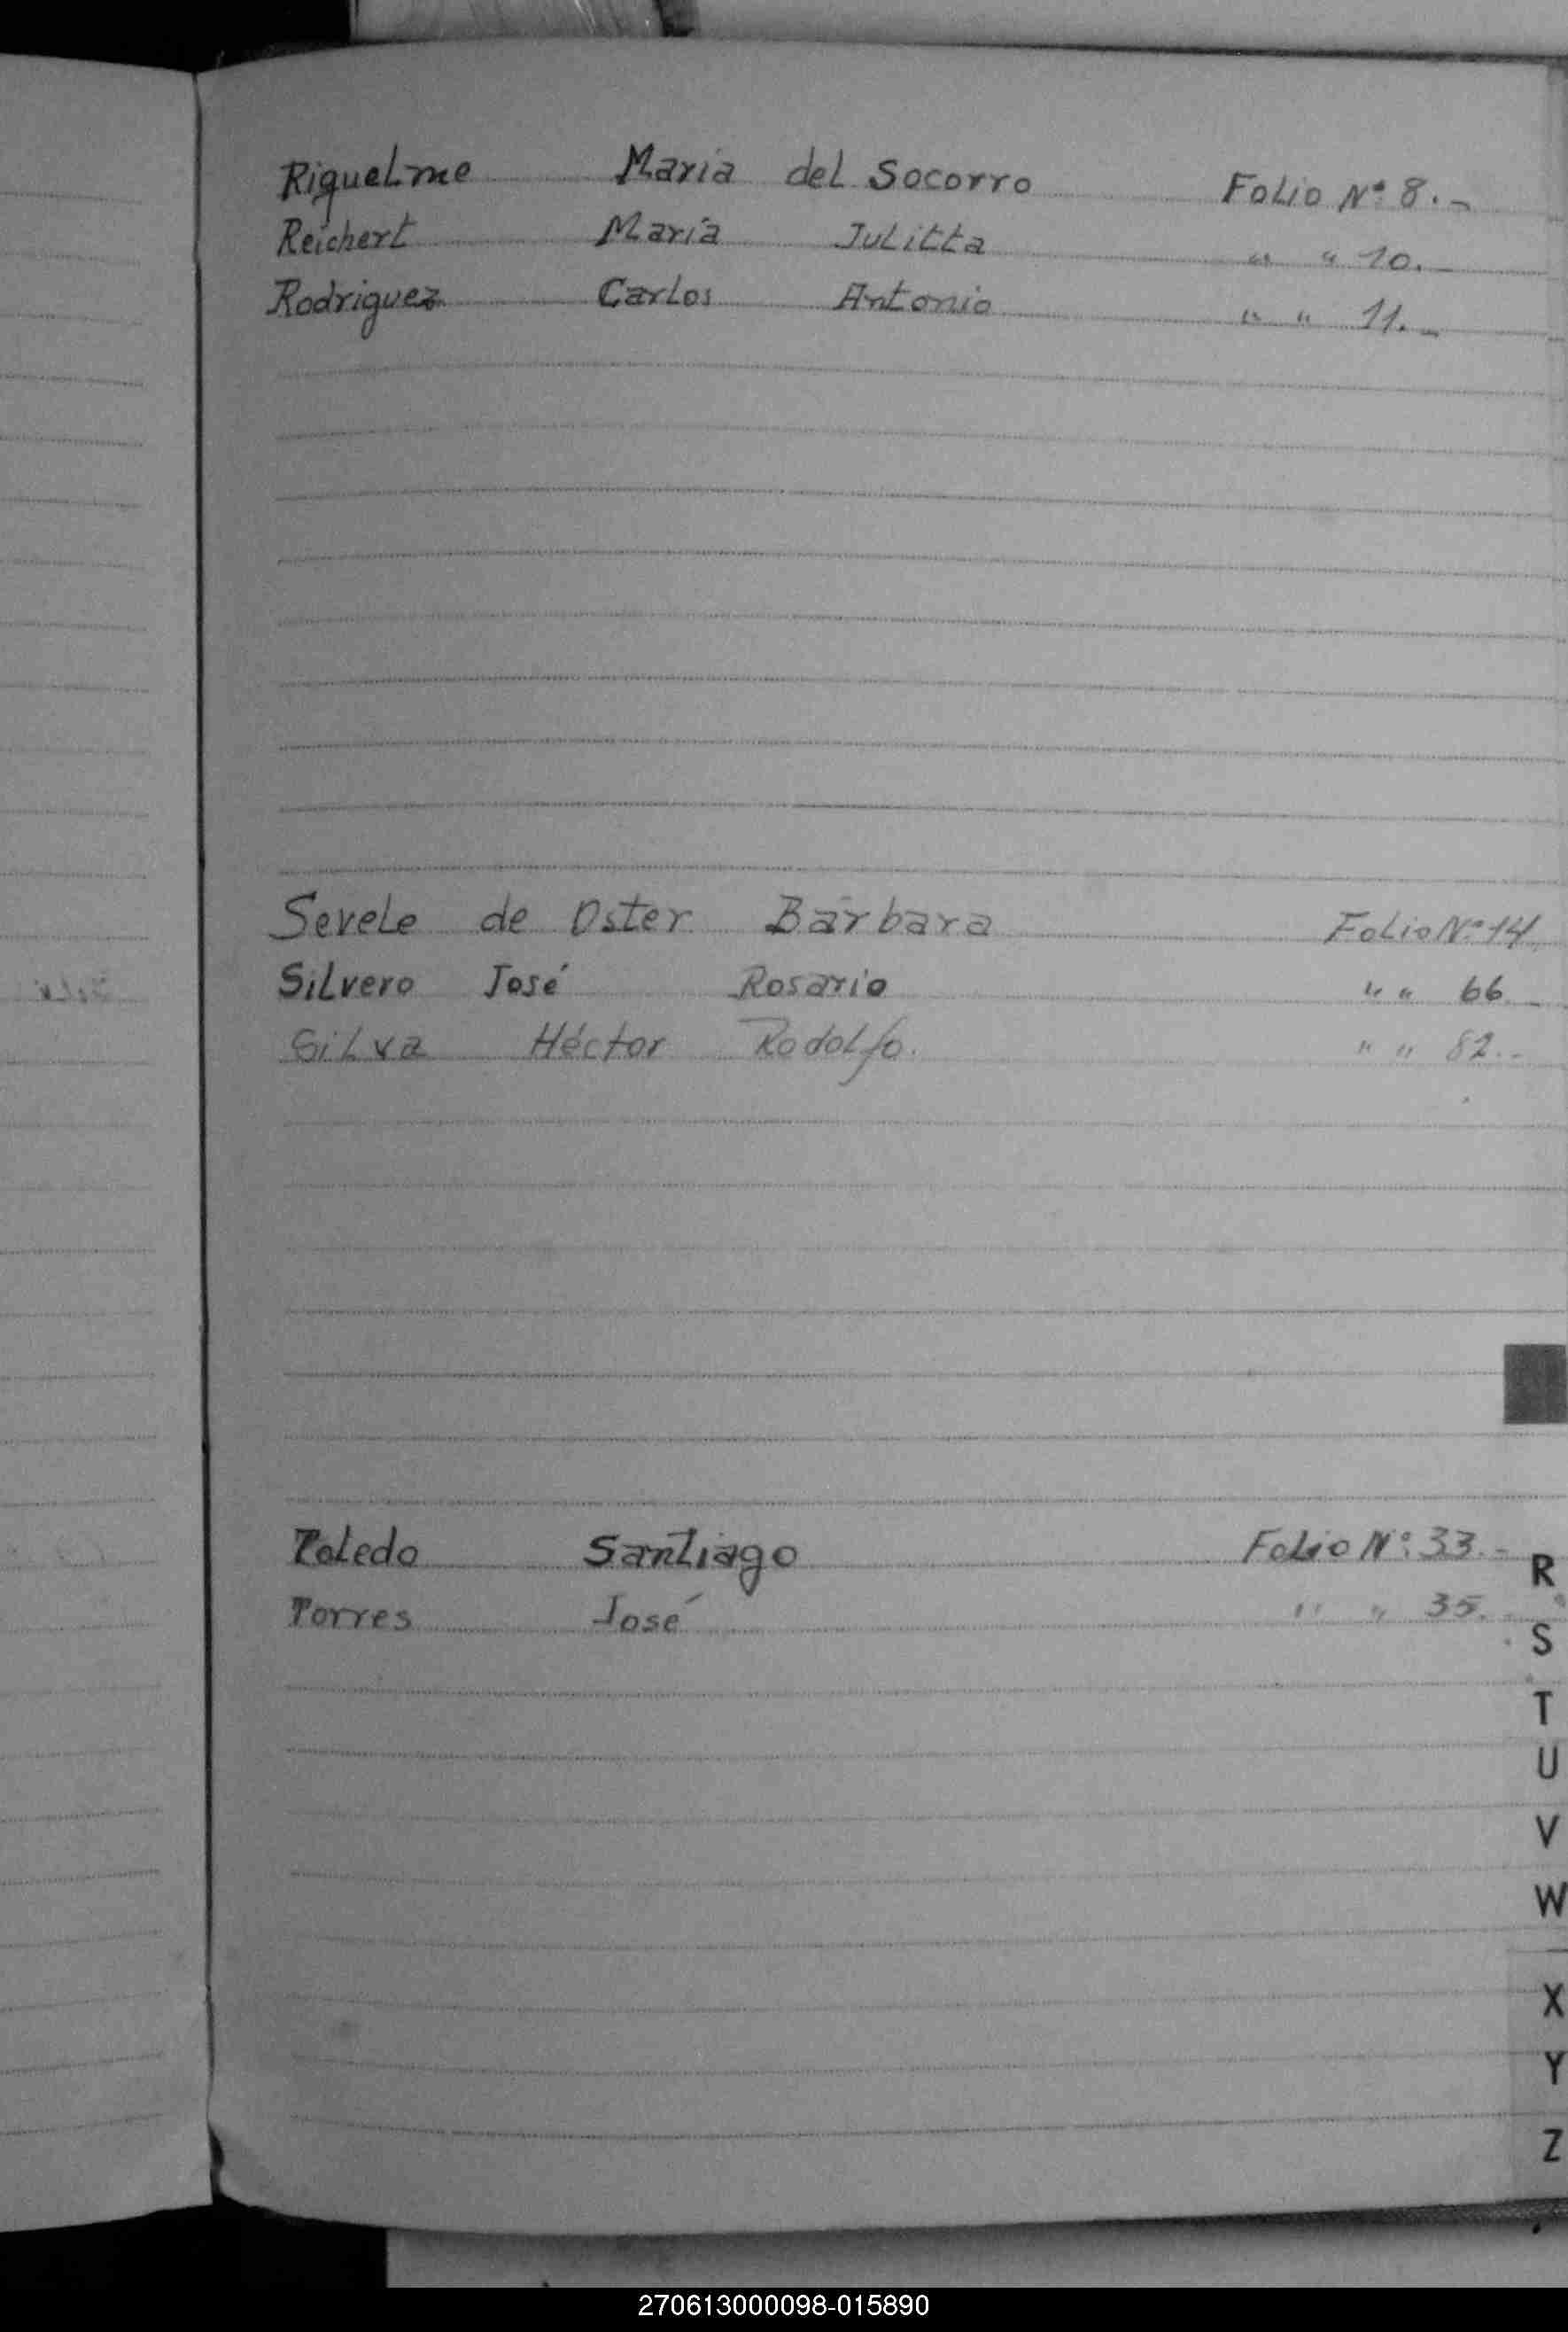 Riquelme Maria del Socorro Folio Nº 8.-
Reichert María Julitta " " 10.-
Rodriguez Carlos Antonio " " 11.-
Sevele de Oster Bárbara Folio Nº 14
Silvero José Rosario " " 66.-
Silva Héctor Rodolfo. " " 82.-
Toledo Santiago Folio Nº 33.-
Torres José " " 35.
R
S
T
U
V
W
X
Y
Z
270613000098-015890